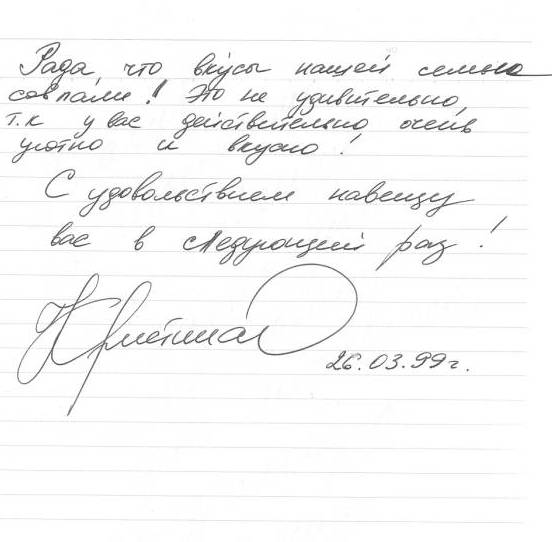 Рада, что вкусы нашей семьи
совпали! Это не удивительно,
т.к у вас действительно очень
уютно и вкусно!
С удовольствием навещу
вас в следующий раз!
Кристина
26.03.99г.